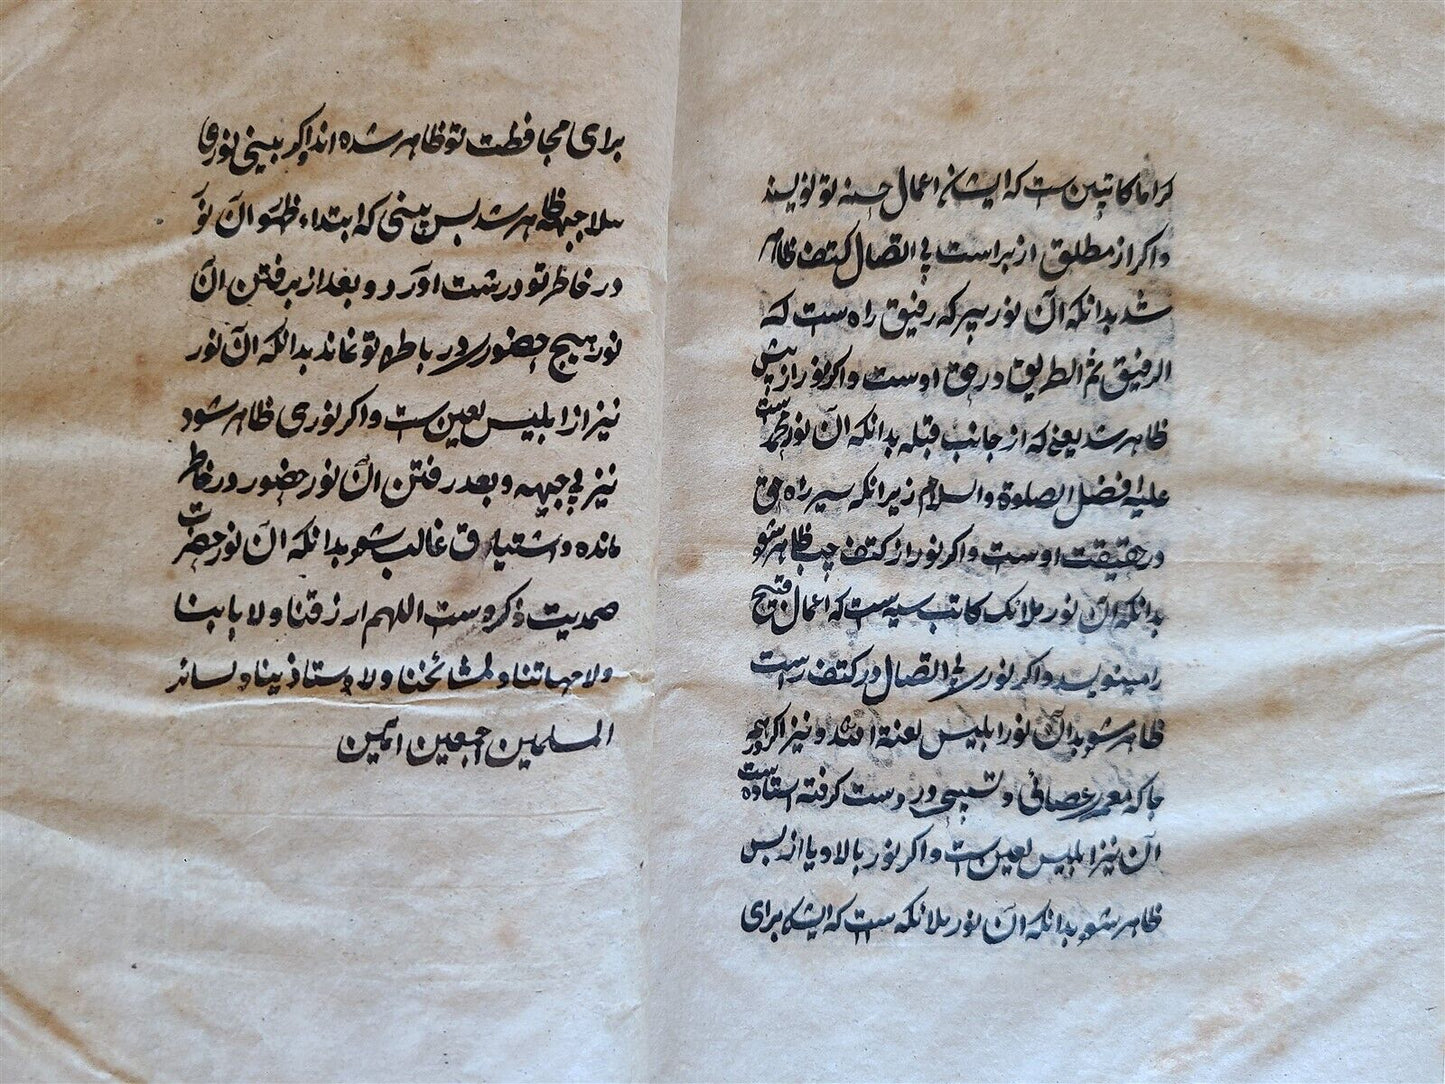 کراما کاتبین ست که ایشان اعمال حسنه تو نویسند
واکر از مطلق از براست پی اتصال کتف ظاهر
شد بدانکه آن نور پیر که رفیق راه ست که
الرفیق ثم الطریق در حق اوست واکر نور از پیش
ظاهر شد یعنی که از جانب قبله بدانکه آن نور محمد ست
علیه افضل الصلوة والسلام زیرانکه سیر راه حق
در حقیقت اوست واکر نور از کتف چپ ظاهر شو
بدانکه آن نور ملائک کاتب سیه ست که اعمال قبیح
را مینویسد واکر نور بی اتصال در کتف راست
ظاهر شو بدآن نور ابلیس لعنة الله و نیز اکر هر
جا که معمر عصائی و تسبیحی در دست کرفته استاده ست
آن نیز ابلیس لعین ست واکر نور بالا و یا از پس
ظاهر شو بدانکه آن نور ملائکه ست که ایشان برای
برای محافظت تو ظاهر شده اند واکر بینی نوری
بلا جهه ظاهر شد پس بینی که ابتداء ظهور آن نور
در خاطر تو درشت آورد و بعد از برفتن آن
نور هیچ حضوری در باطن تو نماند بدانکه آن نور
نیز از ابلیس لعین ست واکر نوری ظاهر شود
نیز بی جهه و بعد رفتن آن نور حضور در خاطر
مانده واشتیاق غالب شو بدانکه آن نور حضرت
صمدیت ذکر وست اللهم ارزقنا ولابابنا
ولامهاتنا ولمشائخنا ولاوستاذینا ولسائر
المسلمین اجمعین آمین